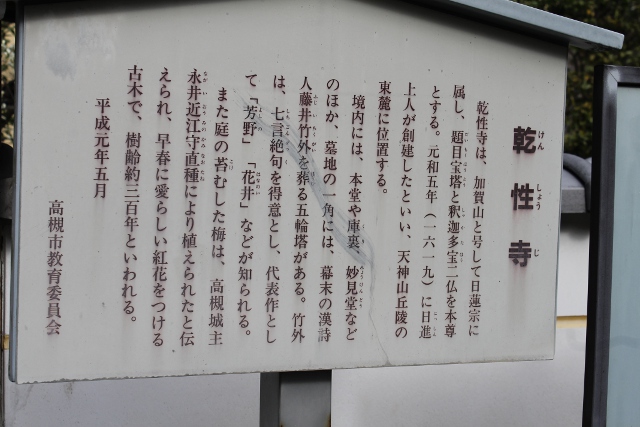 乾性寺
けんしょうじ
乾性寺は、加賀山と号して日蓮宗に
属し、題目宝塔と釈迦多宝二仏を本尊
とする。元和五年（一六一九）に日進
上人が創建したといい、天神山丘陵の
東麓に位置する。
境内には、本堂や庫裏、妙見堂など
のほか、墓地の一角には、幕末の漢詩
人藤井竹外を葬る五輪塔がある。竹外
は、七言絶句を得意とし、代表作とし
て「芳野」「花井」などが知られる。
また庭の苔むした梅は、高槻城主
永井近江守直種により植えられたと伝
えられ、早春に愛らしい紅花をつける
古木で、樹齢約三百年といわれる。
平成元年五月
高槻市教育委員会